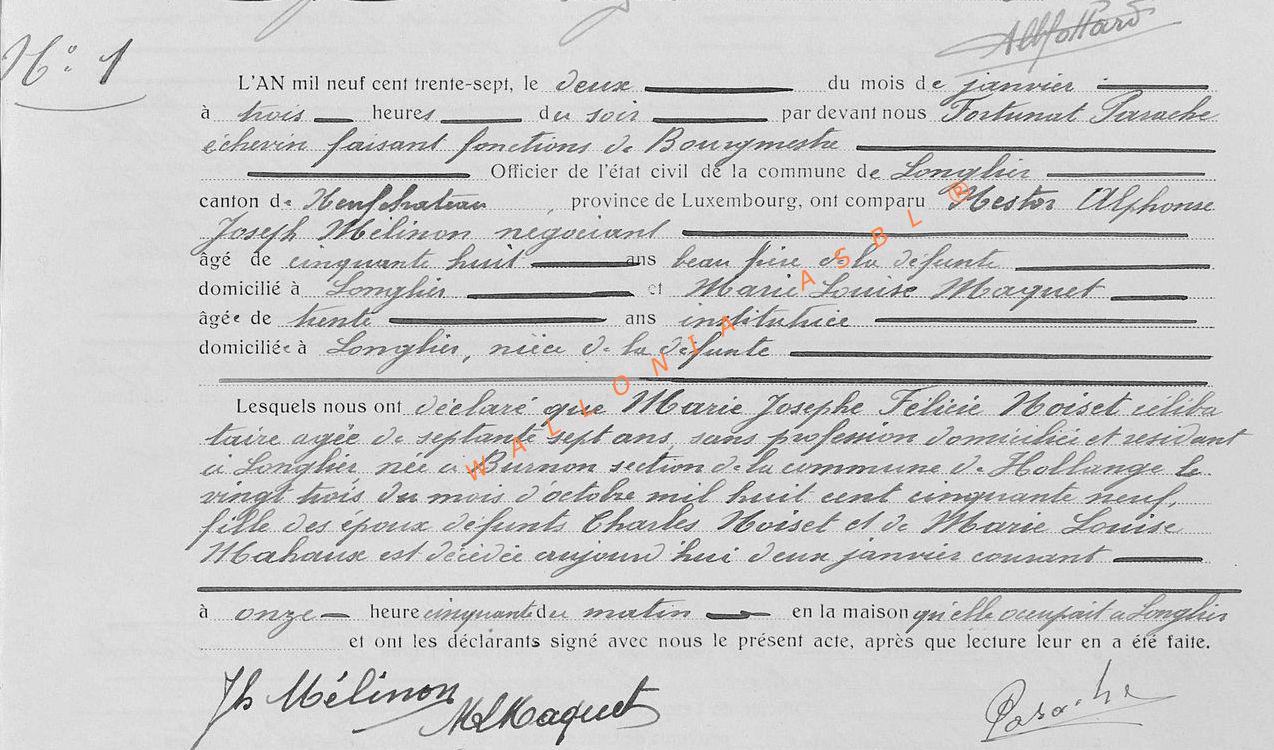 N° 1
L'AN mil neuf cent trente-sept, le deux du mois de janvier
à trois heures du soir par devant nous Fortunat Parache
échevin faisant fonctions de Bourgmestre
Officier de l'état civil de la commune de Longlier
canton de Neufchateau, province de Luxembourg, ont comparu Nestor Alphonse
Joseph Mélinon négociant
âgé de cinquante huit ans beau frère de la défunte
domicilié à Longlier et Marie Louise Maquet
âgée de trente ans institutrice
domiciliée à Longlier, nièce de la défunte
Lesquels nous ont déclaré que Marie Josephe Félicie Noiset céliba
taire agée de septante sept ans, sans profession domiciliée et residant
à Longlier née à Burnon section de la commune de Hollange le
vingt trois du mois d'octobre mil huit cent cinquante neuf,
fille des époux défunts Charles Noiset et de Marie Louise
Mahaux est décédée aujourd'hui deux janvier courant
à onze heure cinquante du matin en la maison qu'elle occupait à Longlier
et ont les déclarants signé avec nous le présent acte, après que lecture leur en a été faite.
Jh Mélinon MLMaquet Parache
WALLONIA ASBL ®